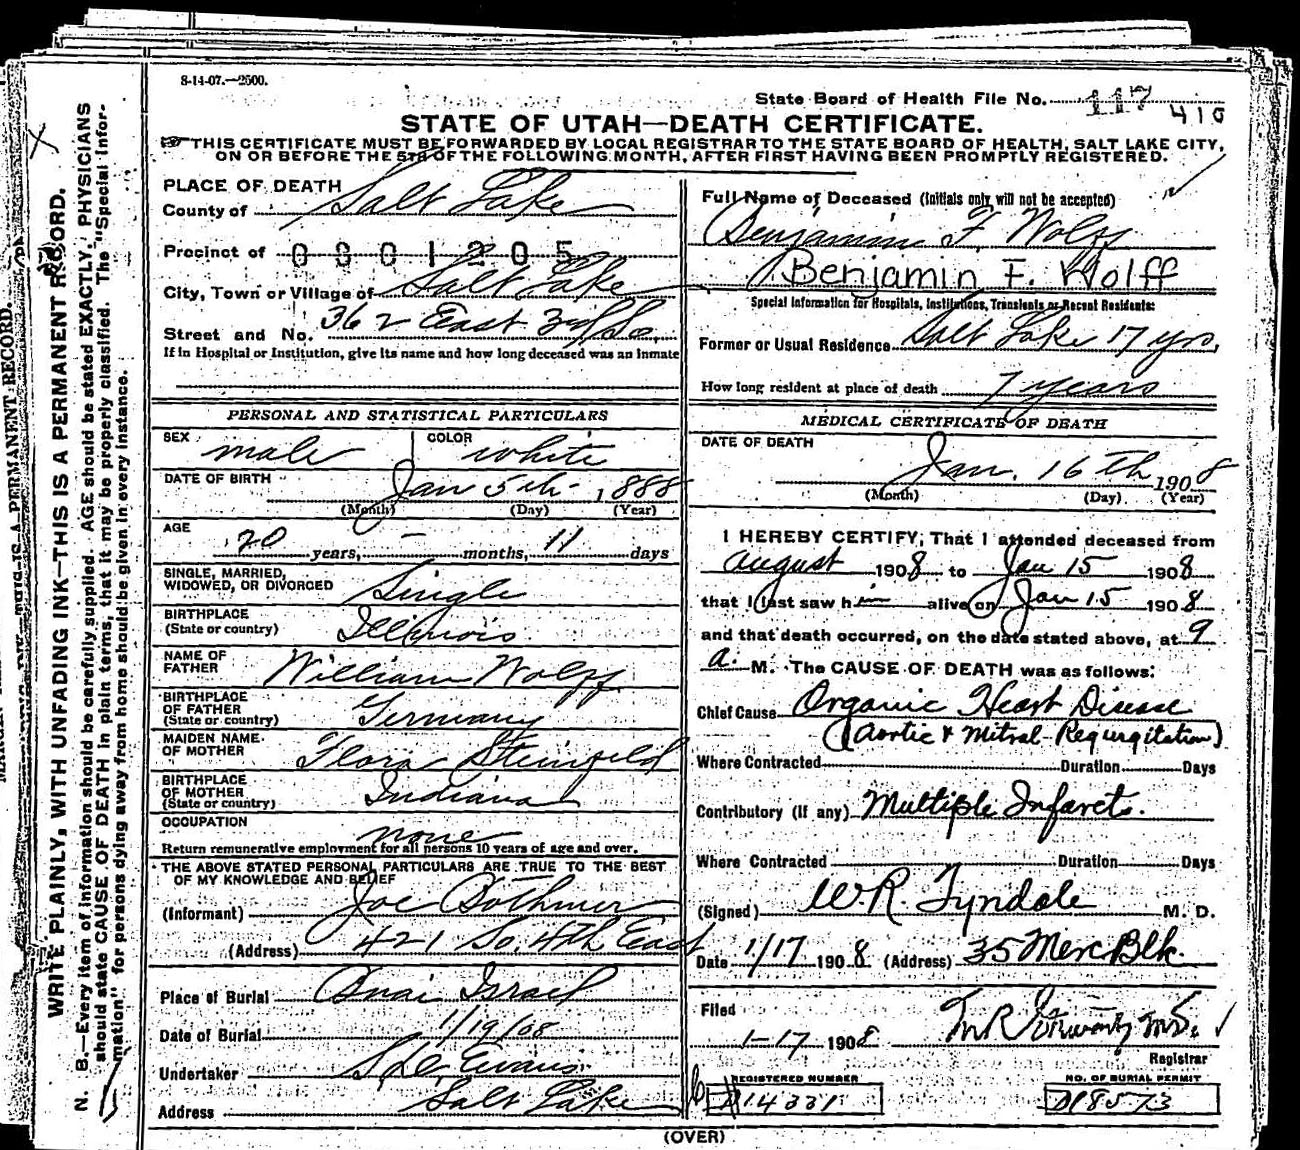 8-14-07.—2500.
State Board of Health File No. 117 410
STATE OF UTAH—DEATH CERTIFICATE.
THIS CERTIFICATE MUST BE FORWARDED BY LOCAL REGISTRAR TO THE STATE BOARD OF HEALTH, SALT LAKE CITY,
ON OR BEFORE THE 5TH OF THE FOLLOWING MONTH, AFTER FIRST HAVING BEEN PROMPTLY REGISTERED.
PLACE OF DEATH
County of Salt Lake
Precinct of 0801205
City, Town or Village of Salt Lake
Street and No. 362 East 3rd So.
If in Hospital or Institution, give its name and how long deceased was an inmate
PERSONAL AND STATISTICAL PARTICULARS
SEX male COLOR white
DATE OF BIRTH Jan 5th 1888
(Month) (Day) (Year)
AGE 20 years, – months, 11 days
SINGLE, MARRIED,
WIDOWED, OR DIVORCED Single
BIRTHPLACE
(State or country) Illinois
NAME OF
FATHER William Wolff
BIRTHPLACE
OF FATHER
(State or country) Germany
MAIDEN NAME
OF MOTHER Flora Steinfeld
BIRTHPLACE
OF MOTHER
(State or country) Indiana
OCCUPATION none
Return remunerative employment for all persons 10 years of age and over.
THE ABOVE STATED PERSONAL PARTICULARS ARE TRUE TO THE BEST
OF MY KNOWLEDGE AND BELIEF
(Informant) Joe Bothmer
(Address) 421 So. 4th East
Place of Burial Bnai Israel
Date of Burial 1/19/08
Undertaker Evans
Address Salt Lake
Full Name of Deceased (Initials only will not be accepted)
Benjamin F. Wolff
Benjamin F. Wolff
Special Information for Hospitals, Institutions, Transients or Recent Residents:
Former or Usual Residence Salt Lake 17 yrs.
How long resident at place of death 7 years
MEDICAL CERTIFICATE OF DEATH
DATE OF DEATH
Jan. 16th 1908
(Month) (Day) (Year)
I HEREBY CERTIFY, That I attended deceased from
August 1908 to Jan 15 1908
that I last saw him alive on Jan 15 1908
and that death occurred, on the date stated above, at 9
a. M. The CAUSE OF DEATH was as follows:
Chief Cause Organic Heart Disease
(Aortic & Mitral Regurgitation)
Where Contracted Duration Days
Contributory (if any) Multiple Infarcts.
Where Contracted Duration Days
(Signed) W.R. Tyndale M. D.
Date 1/17 1908 (Address) 35 Merc Blk.
Filed
1-17 1908
Registrar
REGISTERED NUMBER
D14331
NO. OF BURIAL PERMIT
D18573
(OVER)
WRITE PLAINLY, WITH UNFADING INK—THIS IS A PERMANENT RECORD.
N. B.—Every item of information should be carefully supplied. AGE should be stated EXACTLY. PHYSICIANS
should state CAUSE OF DEATH in plain terms, that it may be properly classified. The "Special Infor-
mation" for persons dying away from home should be given in every instance.